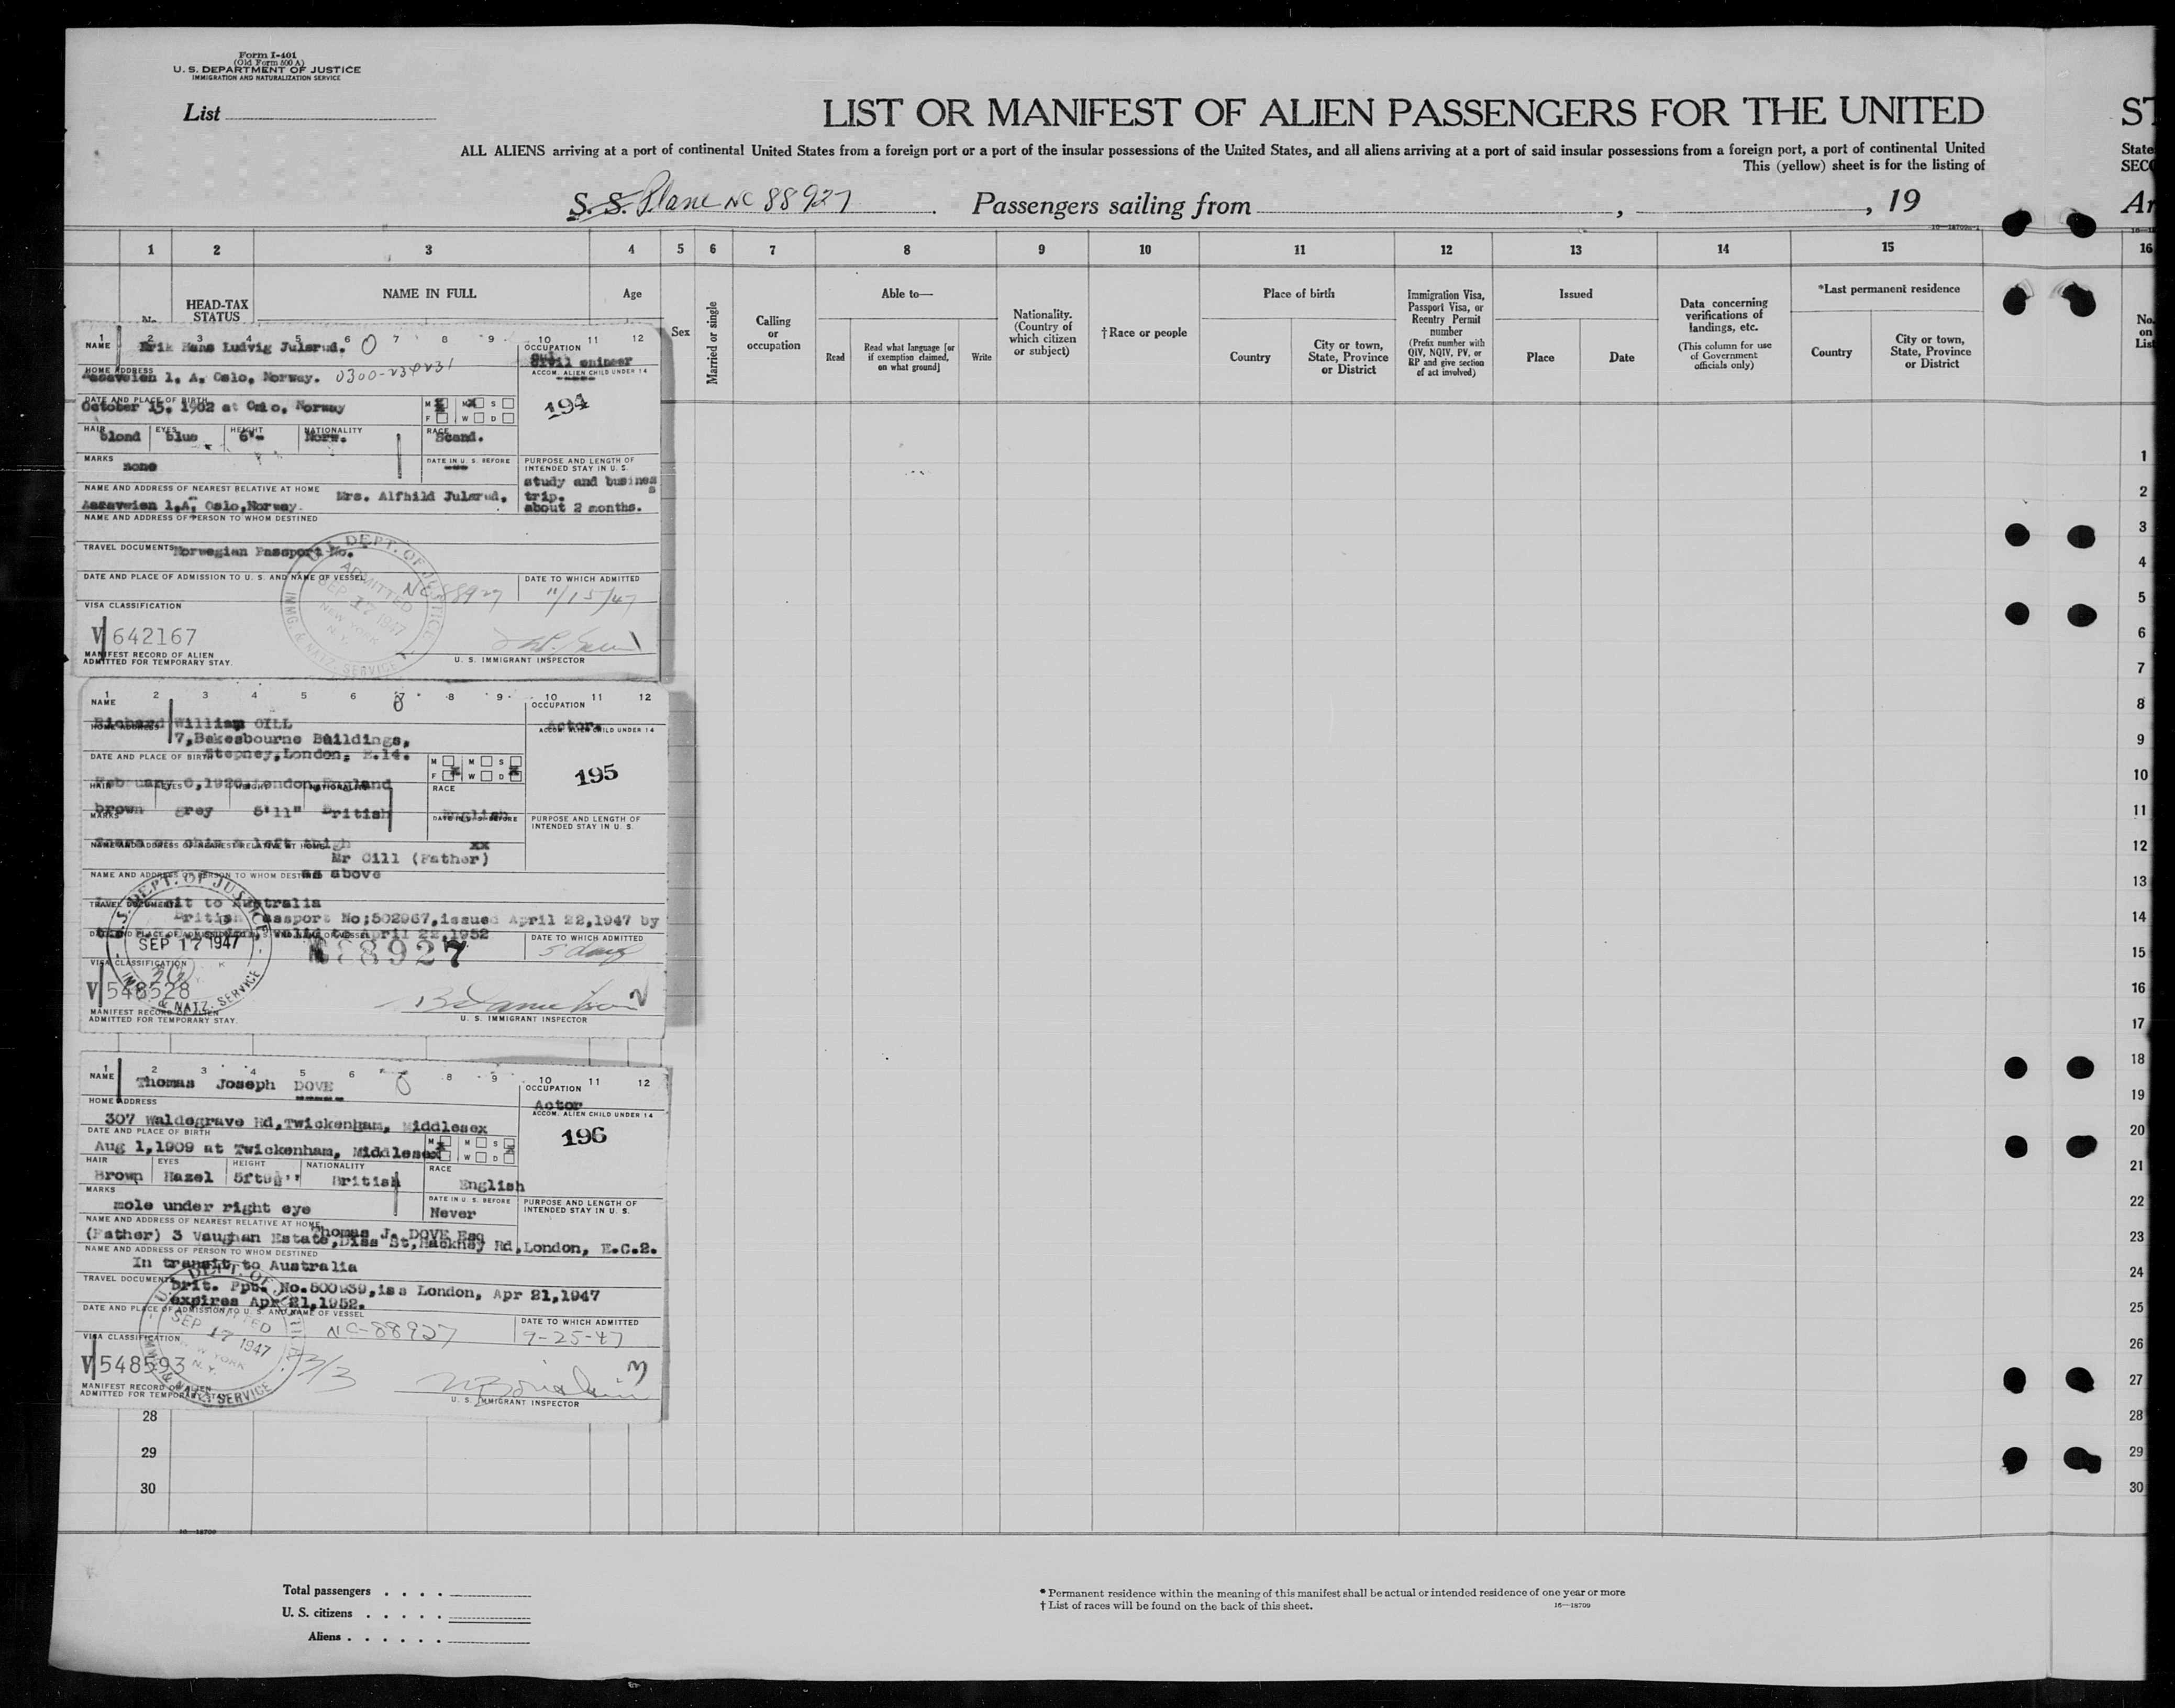 Form I-401
(Old Form 500 A)
U. S. DEPARTMENT OF JUSTICE
IMMIGRATION AND NATURALIZATION SERVICE
List
LIST OR MANIFEST OF ALIEN PASSENGERS FOR THE UNITED
ST
ALL ALIENS arriving at a port of continental United States from a foreign port or a port of the insular possessions of the United States, and all aliens arriving at a port of said insular possessions from a foreign port, a port of continental United
State
This (yellow) sheet is for the listing of
SECO
S. S. Plane NC 88927. Passengers sailing from , , 19
Ar
16—18709a-1
1 2 3 4 5 6 7 8 9 10 11 12 13 14 15 16
HEAD-TAX STATUS
NAME IN FULL
Age
Sex
Married or single
Calling or occupation
Able to—
Read
Read what language [or if exemption claimed, on what ground]
Write
Nationality. (Country of which citizen or subject)
†Race or people
Place of birth
Country
City or town, State, Province or District
Immigration Visa, Passport Visa, or Reentry Permit number
(Prefix number with QIV, NQIV, PV, or RP and give section of act involved)
Issued
Place
Date
Data concerning verifications of landings, etc.
(This column for use of Government officials only)
*Last permanent residence
Country
City or town, State, Province or District
No. on List
1 2 3 4 5 6 7 8 9 10 11 12
NAME
Erik Hans Ludvig Julsrud. 0
OCCUPATION
HOME ADDRESS
Aasaveien 1, A, Oslo, Norway. 0300-
ACCOM. ALIEN CHILD UNDER 14
DATE AND PLACE OF BIRTH
October 15, 1902 at Norway
M M S
F W D
194
HAIR EYES HEIGHT NATIONALITY RACE
blond blue 6'- Norw. Scand.
MARKS
none
DATE IN U. S. BEFORE
PURPOSE AND LENGTH OF INTENDED STAY IN U. S.
study and business trip.
about 2 months.
NAME AND ADDRESS OF NEAREST RELATIVE AT HOME
Mrs. Alfhild Julsrud,
Aasaveien 1,A, Oslo,Norway.
NAME AND ADDRESS OF PERSON TO WHOM DESTINED
TRAVEL DOCUMENTS
Norwegian Passport No.
DATE AND PLACE OF ADMISSION TO U. S. AND NAME OF VESSEL
NC 88927
DATE TO WHICH ADMITTED
11/15/47
U. S. DEPT. OF JUSTICE
ADMITTED
SEP 17 1947
NEW YORK
N. Y.
IMMG. & NATZ. SERVICE
VISA CLASSIFICATION
V 642167
MANIFEST RECORD OF ALIEN
ADMITTED FOR TEMPORARY STAY.
U. S. IMMIGRANT INSPECTOR
1
1 2 3 4 5 6 7 8 9 10 11 12
NAME
0
OCCUPATION
Richard William GILL
Actor.
HOME ADDRESS
ACCOM. ALIEN CHILD UNDER 14
7,Bekesbourne Buildings,
Stepney,London, E.14.
DATE AND PLACE OF BIRTH
M M S
F W D
195
February 6,1926,London,England
HAIR EYES HEIGHT NATIONALITY
RACE
brown grey 5'11" British
English
MARKS
DATE IN U. S. BEFORE
PURPOSE AND LENGTH OF INTENDED STAY IN U. S.
left thigh
xx
NAME AND ADDRESS OF NEAREST RELATIVE AT HOME
Mr Gill (Father)
NAME AND ADDRESS OF PERSON TO WHOM DESTINED
as above
TRAVEL DOCUMENTS
to Australia
British Passport No;502967,issued April 22,1947 by
valid to April 22,1952
DATE TO WHICH ADMITTED
5 days
SEP 17 1947
N88927
VISA CLASSIFICATION
V 548528
MANIFEST RECORD OF ALIEN
ADMITTED FOR TEMPORARY STAY.
U. S. IMMIGRANT INSPECTOR
2
1 2 3 4 5 6 7 8 9 10 11 12
NAME
Thomas Joseph DOVE 0
OCCUPATION
Actor
HOME ADDRESS
ACCOM. ALIEN CHILD UNDER 14
307 Waldegrave Rd,Twickenham, Middlesex
DATE AND PLACE OF BIRTH
Aug 1,1909 at Twickenham, Middlesex
M M S
W D
196
HAIR EYES HEIGHT NATIONALITY RACE
Brown Hazel British English
MARKS
mole under right eye
DATE IN U. S. BEFORE
Never
PURPOSE AND LENGTH OF INTENDED STAY IN U. S.
NAME AND ADDRESS OF NEAREST RELATIVE AT HOME
Thomas J. DOVE Esq
(Father) 3 Vaughan Estate,Diss St,Hackney Rd,London, E.C.2.
NAME AND ADDRESS OF PERSON TO WHOM DESTINED
In transit to Australia
TRAVEL DOCUMENTS
Brit. Ppt. No.500939,iss London, Apr 21,1947
expires Apr 21,1952.
DATE AND PLACE OF ADMISSION TO U. S. AND NAME OF VESSEL
NC-88927
DATE TO WHICH ADMITTED
9-25-47
SEP 17 1947
NEW YORK
N. Y.
VISA CLASSIFICATION
V 548593
3/3
3
MANIFEST RECORD OF ALIEN
ADMITTED FOR TEMPORARY STAY.
U. S. IMMIGRANT INSPECTOR
28
29
30
16—18709
1
2
3
4
5
6
7
8
9
10
11
12
13
14
15
16
17
18
19
20
21
22
23
24
25
26
27
28
29
30
Total passengers . . . .
U. S. citizens . . . . .
Aliens . . . . . .
* Permanent residence within the meaning of this manifest shall be actual or intended residence of one year or more
† List of races will be found on the back of this sheet.
16—18709